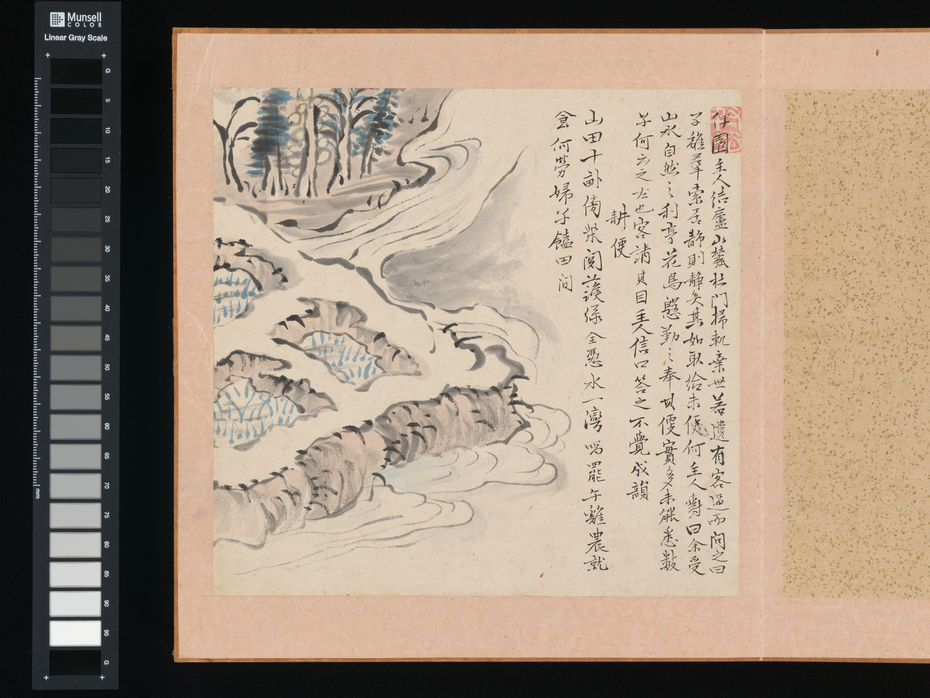 Munsell
COLOR
Linear Gray Scale
G
5
10
15
20
25
30
35
40
45
50
55
60
65
70
75
80
85
90
95
G
mm
伊園主人結廬山麓杜門掃軌棄世若遺有客過而問之曰
子離羣索居静則静矣其如取給未便何主人對曰余受
山水自然之利享花鳥慇勤之奉其便實多未能悉數
子何云之左也客請其目主人信口答之不覺成韻
耕便
山田十畝傍柴関護緑全憑水一灣唱罷午雞農就
食何勞婦子饁田間